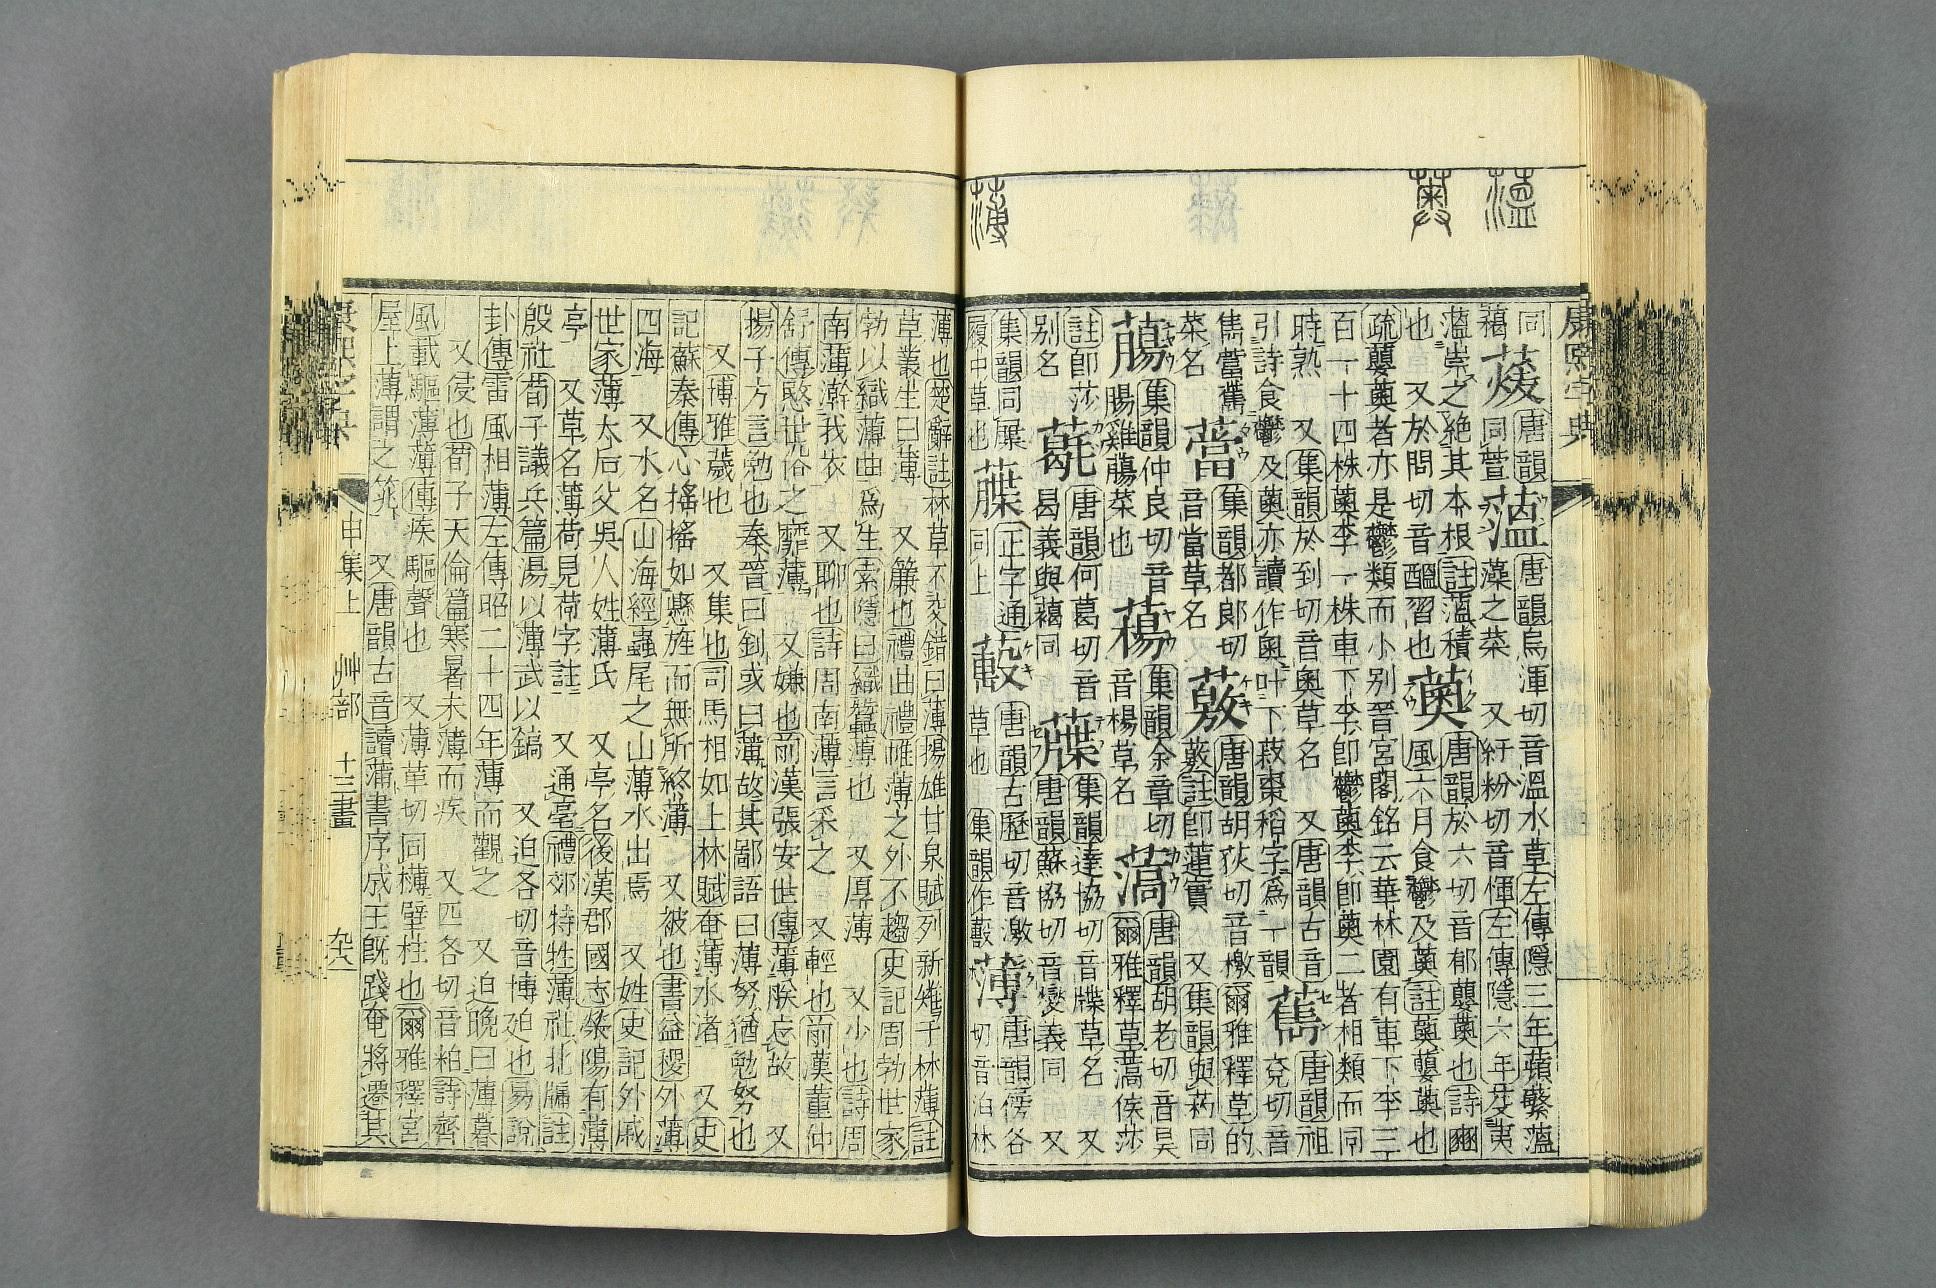 薀
薁
薄
康熙字典
同
萲唐韻
同萱
薀唐韻烏渾切音溫水草左傳隱三年蘋蘩薀
藻之菜 又紆粉切音惲左傳隱六年芟夷
薀崇之絕其本根註薀積
也 又於問切音醞習也
薁唐韻於六切音郁蘡薁也詩豳
風六月食鬱及薁註薁蘡薁也
疏蘡薁者亦是鬱類而小別晉宮閣銘云華林園有車下李三
百一十四株薁李一株車下李卽鬱薁李卽薁二者相類而同
時熟 又集韻於到切音奧草名 又唐韻古音
引詩食鬱及薁亦讀作奧叶下菽棗稻字爲一韻
唐韻祖
兗切音
雋當
菜名
集韻都郎切
音當草名
薂唐韻胡狄切音檄爾雅釋草的
薂註卽蓮實 又集韻與菂同
集韻仲良切音
腸雞 菜也
集韻余章切
音楊草名
薃唐韻胡老切音昊
爾雅釋草薃侯莎
註卽莎
別名
唐韻何葛切音
曷義與 同
集韻達協切音牒草名 又
唐韻蘇協切音燮義同 又
集韻同屧
履中草也
正字通
同上
唐韻古歷切音激
草也 集韻作
薄唐韻傍各
切音泊林
薄也楚辭註林草不交錯曰薄揚雄甘泉賦列新雉于林薄註
草叢生曰薄 又簾也禮曲禮帷薄之外不趨史記周勃世家
勃以織薄曲爲生索隱曰織蠶薄也 又厚薄 又少也詩周
南薄澣我衣 又聊也詩周南薄言采之 又輕也前漢董仲
舒傳愍世俗之靡薄 又嫌也前漢張安世傳薄朕忘故 又
揚子方言勉也秦晉曰釗或曰薄故其鄙語曰薄努猶勉努也
又博雅薄藏也 又集也司馬相如上林賦奄薄水渚 又史
記蘇秦傳心搖搖如懸旌而無所終薄 又被也書益稷外薄
四海 又水名山海經蟲尾之山薄水出焉 又姓史記外戚
世家薄太后父吳人姓薄氏 又亭名後漢郡國志滎陽有薄
亭 又草名薄荷見荷字註 又通亳禮郊特牲薄社北牖註
殷社荀子議兵篇湯以薄武以鎬 又迫各切音博迫也易說
卦傳雷風相薄左傳昭二十四年薄而觀之 又迫晚曰薄暮
又侵也荀子天倫篇寒暑未薄而疾 又匹各切音粕詩齊
風載驅薄薄傳疾驅聲也 又薄革切同欂壁柱也爾雅釋宮
屋上薄謂之筄 又唐韻古音讀蒲書序成王旣踐奄將遷其
康熙字典
申集上 艸部 十三畫